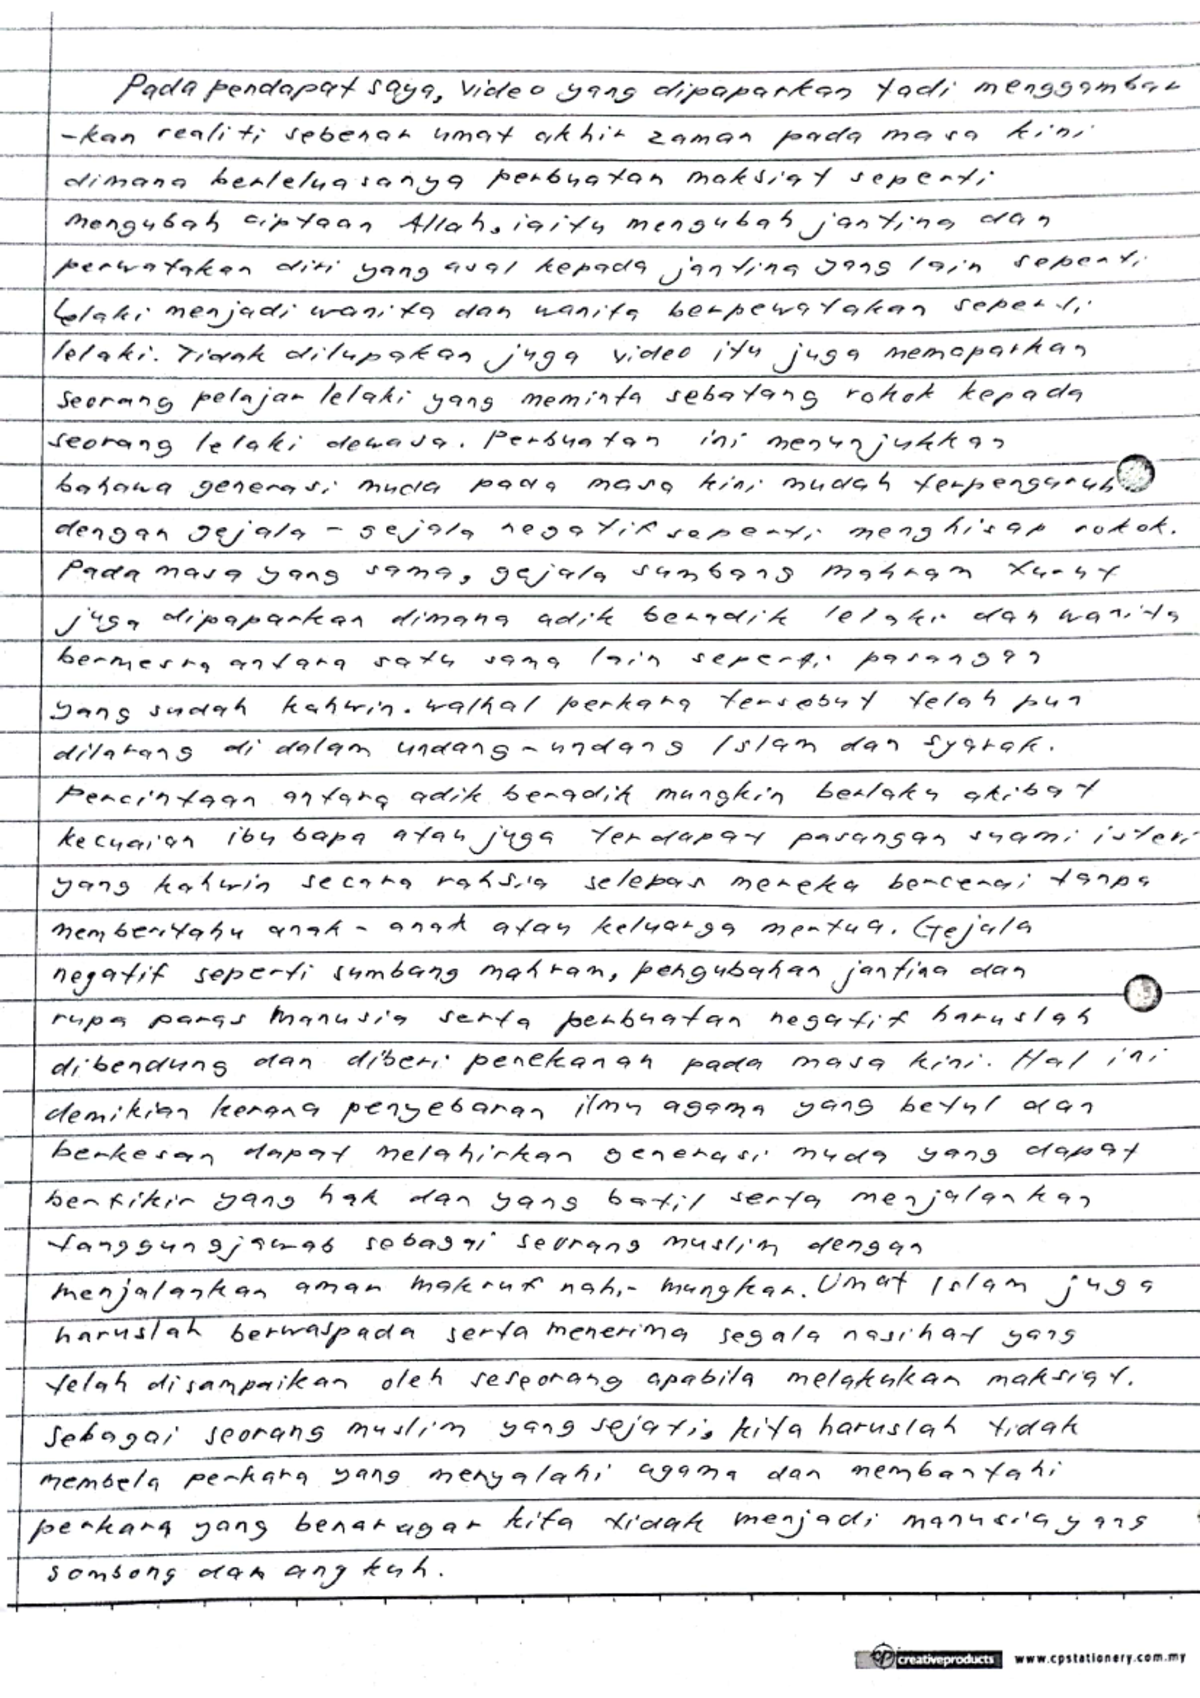 Pada pendapat saya, video yang dipaparkan tadi menggambar
-kan realiti sebenar umat akhir zaman pada masa kini
dimana berleluasanya perbuatan maksiat seperti
mengubah ciptaan Allah, iaitu mengubah jantina dan
perwatakan diri yang asal kepada jantina yang lain seperti
lelaki menjadi wanita dan wanita berpewatakan seperti
lelaki. Tidak dilupakan juga video itu juga memaparkan
seorang pelajar lelaki yang meminta sebatang rokok kepada
seorang lelaki dewasa. Perbuatan ini menunjukkan
bahawa generasi muda pada masa kini mudah terpengaruh
dengan gejala - gejala negatif seperti menghisap rokok.
Pada masa yang sama, gejala sumbang mahram turut
juga dipaparkan dimana adik beradik lelaki dan wanita
bermesra antara satu sama lain seperti pasangan
yang sudah kahwin. walhal perkara tersebut telah pun
dilarang di dalam undang-undang Islam dan syarak.
Percintaan antara adik beradik mungkin berlaku akibat
kecuaian ibu bapa atau juga terdapat pasangan suami isteri
yang kahwin secara rahsia selepas mereka bercerai tanpa
memberitahu anak - anak atau keluarga mertua. Gejala
negatif seperti sumbang mahram, pengubahan jantina dan
rupa paras manusia serta perbuatan negatif haruslah
dibendung dan diberi penekanan pada masa kini. Hal ini
demikian kerana penyebaran ilmu agama yang betul dan
berkesan dapat melahirkan generasi muda yang dapat
berfikir yang hak dan yang batil serta menjalankan
tanggungjawab sebagai seorang muslim dengan
menjalankan amar makruf nahi- mungkar. Umat Islam juga
haruslah berwaspada serta menerima segala nasihat yang
telah disampaikan oleh seseorang apabila melakukan maksiat.
Sebagai seorang muslim yang sejati, kita haruslah tidak
membela perkara yang menyalahi agama dan membantahi
perkara yang benar agar kita tidak menjadi manusia yang
sombong dan angkuh.
cp creativeproducts www.cpstationery.com.my